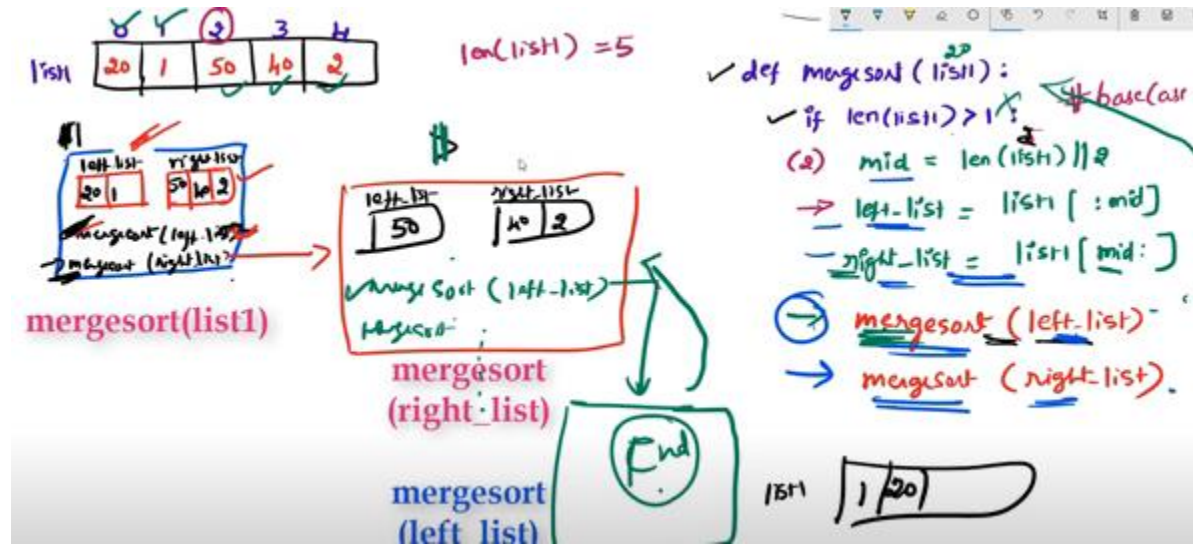 0 1 2 3 4
list 20 1 50 40 2
len(list1) = 5
left list right list
20 1 50 40 2
mergesort (left_list)
mergesort (right list)
mergesort(list1)
left_list right_list
50 40 2
merge sort (left_list)
mergesort
mergesort
(right_list)
End
mergesort
(left_list)
20
def mergesort (list1) :
# base case
if len(list1) > 1 :
(2) mid = len (list1) || 2
→ left_list = list1 [ :mid]
right_list = list1 [ mid: ]
→ mergesort (left_list)
→ mergesort (right_list).
list1 1 20